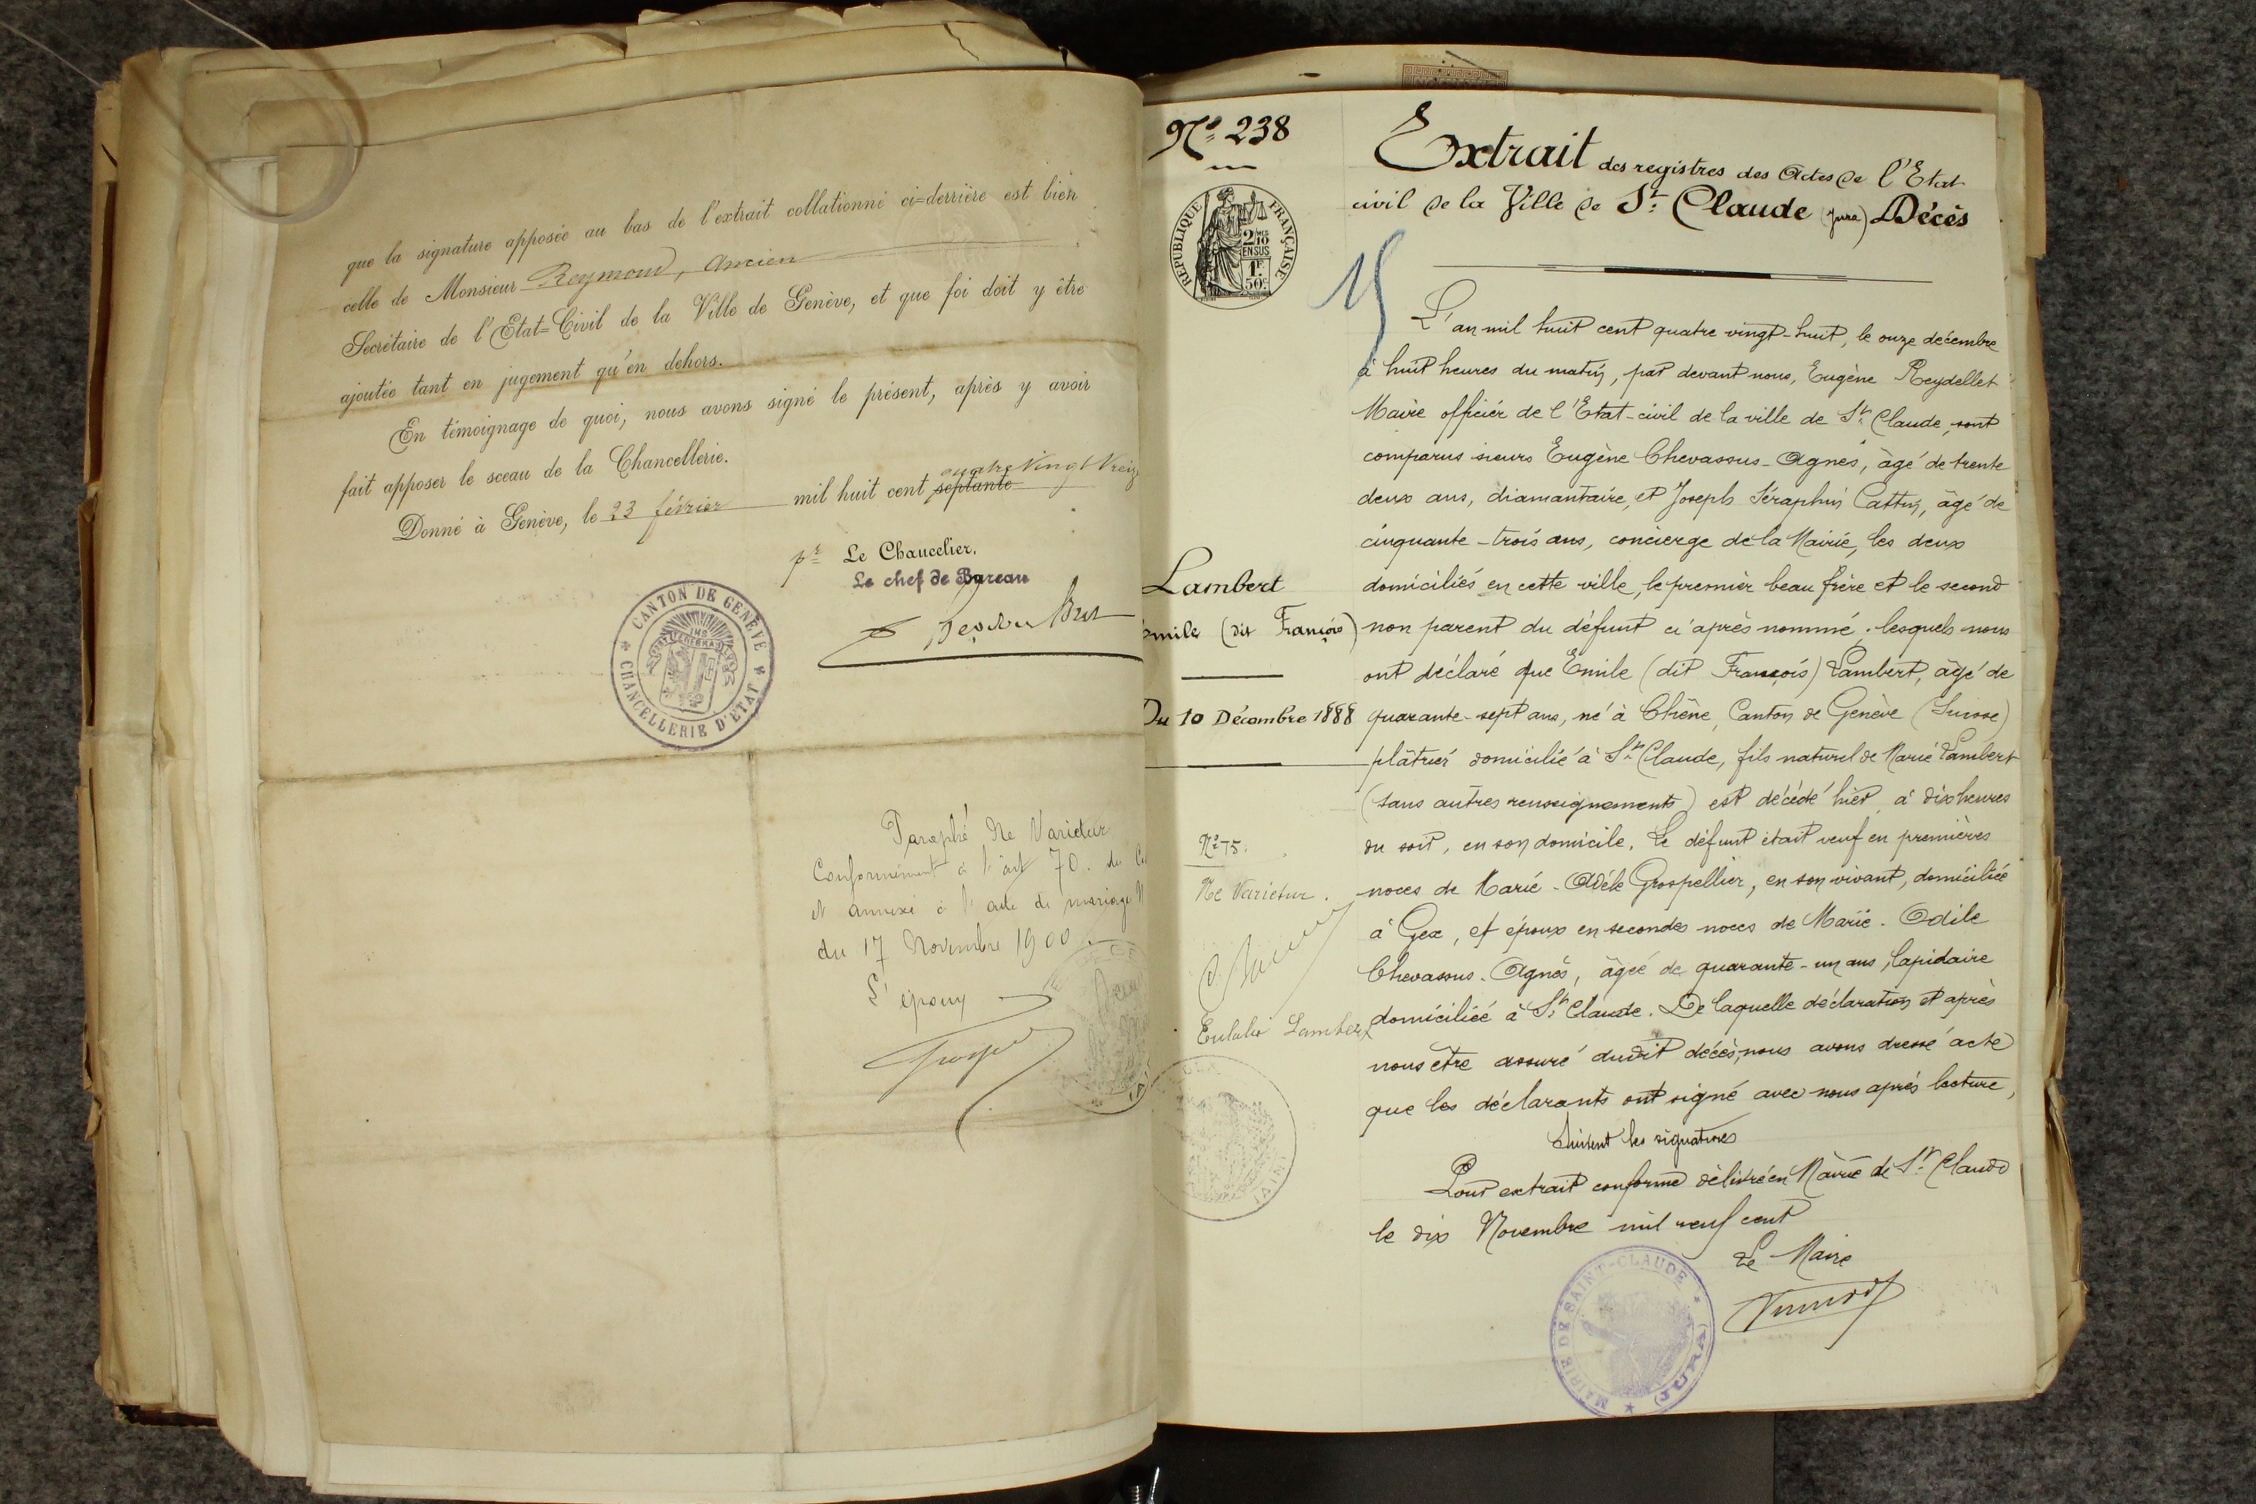 que la signature apposée au bas de l'extrait collationné ci=derrière est bien
celle de Monsieur Reymond, ancien
Secrétaire de l'Etat=Civil de la Ville de Genève, et que foi doit y être
ajoutée tant en jugement qu'en dehors.
En témoignage de quoi, nous avons signé le présent, après y avoir
fait apposer le sceau de la Chancellerie.
quatre vingt treize
Donné à Genève, le 23 février mil huit cent septante
pr Le Chancelier,
Le chef de Bureau
CANTON DE GENÈVE
CHANCELLERIE D'ETAT
Paraphé Ne Varietur
Conformément à l'art 70. du
et annexé à l'acte de mariage N
du 17 Novembre 1900
L'époux
No 238
RÉPUBLIQUE FRANÇAISE
2/10
EN SUS
1F.
50c.
Lambert
Emile (dit François)
Du 10 Décembre 1888
No 75.
Ne Varietur.
Eulalie Lambert
Extrait des registres des Actes de l'Etat
civil de la Ville de St. Claude (Jura) Décès
L'an mil huit cent quatre vingt-huit, le onze décembre
à huit heures du matin, par devant nous, Eugène Reydellet
Maire officier de l'Etat-civil de la ville de St Claude, sont
comparus sieurs Eugène Chevassus-Agnès, âgé de trente
deux ans, diamantaire, et Joseph Séraphin Cattin, âgé de
cinquante-trois ans, concierge de la Mairie, les deux
domiciliés en cette ville, le premier beau frère et le second
non parent du défunt ci après nommé. lesquels nous
ont déclaré que Emile (dit François) Lambert, âgé de
quarante-sept ans, né à Chêne, Canton de Genève (Suisse)
plâtrier domicilié à St Claude, fils naturel de Marie Lambert
(sans autres renseignements) est décédé hier à dix heures
du soir, en son domicile. Le défunt était veuf en premières
noces de Marie-Adèle Grospellier, en son vivant, domiciliée
à Gex, et époux en secondes noces de Marie-Odile
Chevassus-Agnès, âgée de quarante-un ans, lapidaire
domiciliée à St Claude. De laquelle déclaration et après
nous être assuré dudit décès, nous avons dressé acte
que les déclarants ont signé avec nous après lecture,
Suivent les signatures
Pour extrait conforme délivré en Mairie de St Claude
le dix Novembre mil neuf cent
Le Maire
MAIRIE DE SAINT-CLAUDE
(JURA)